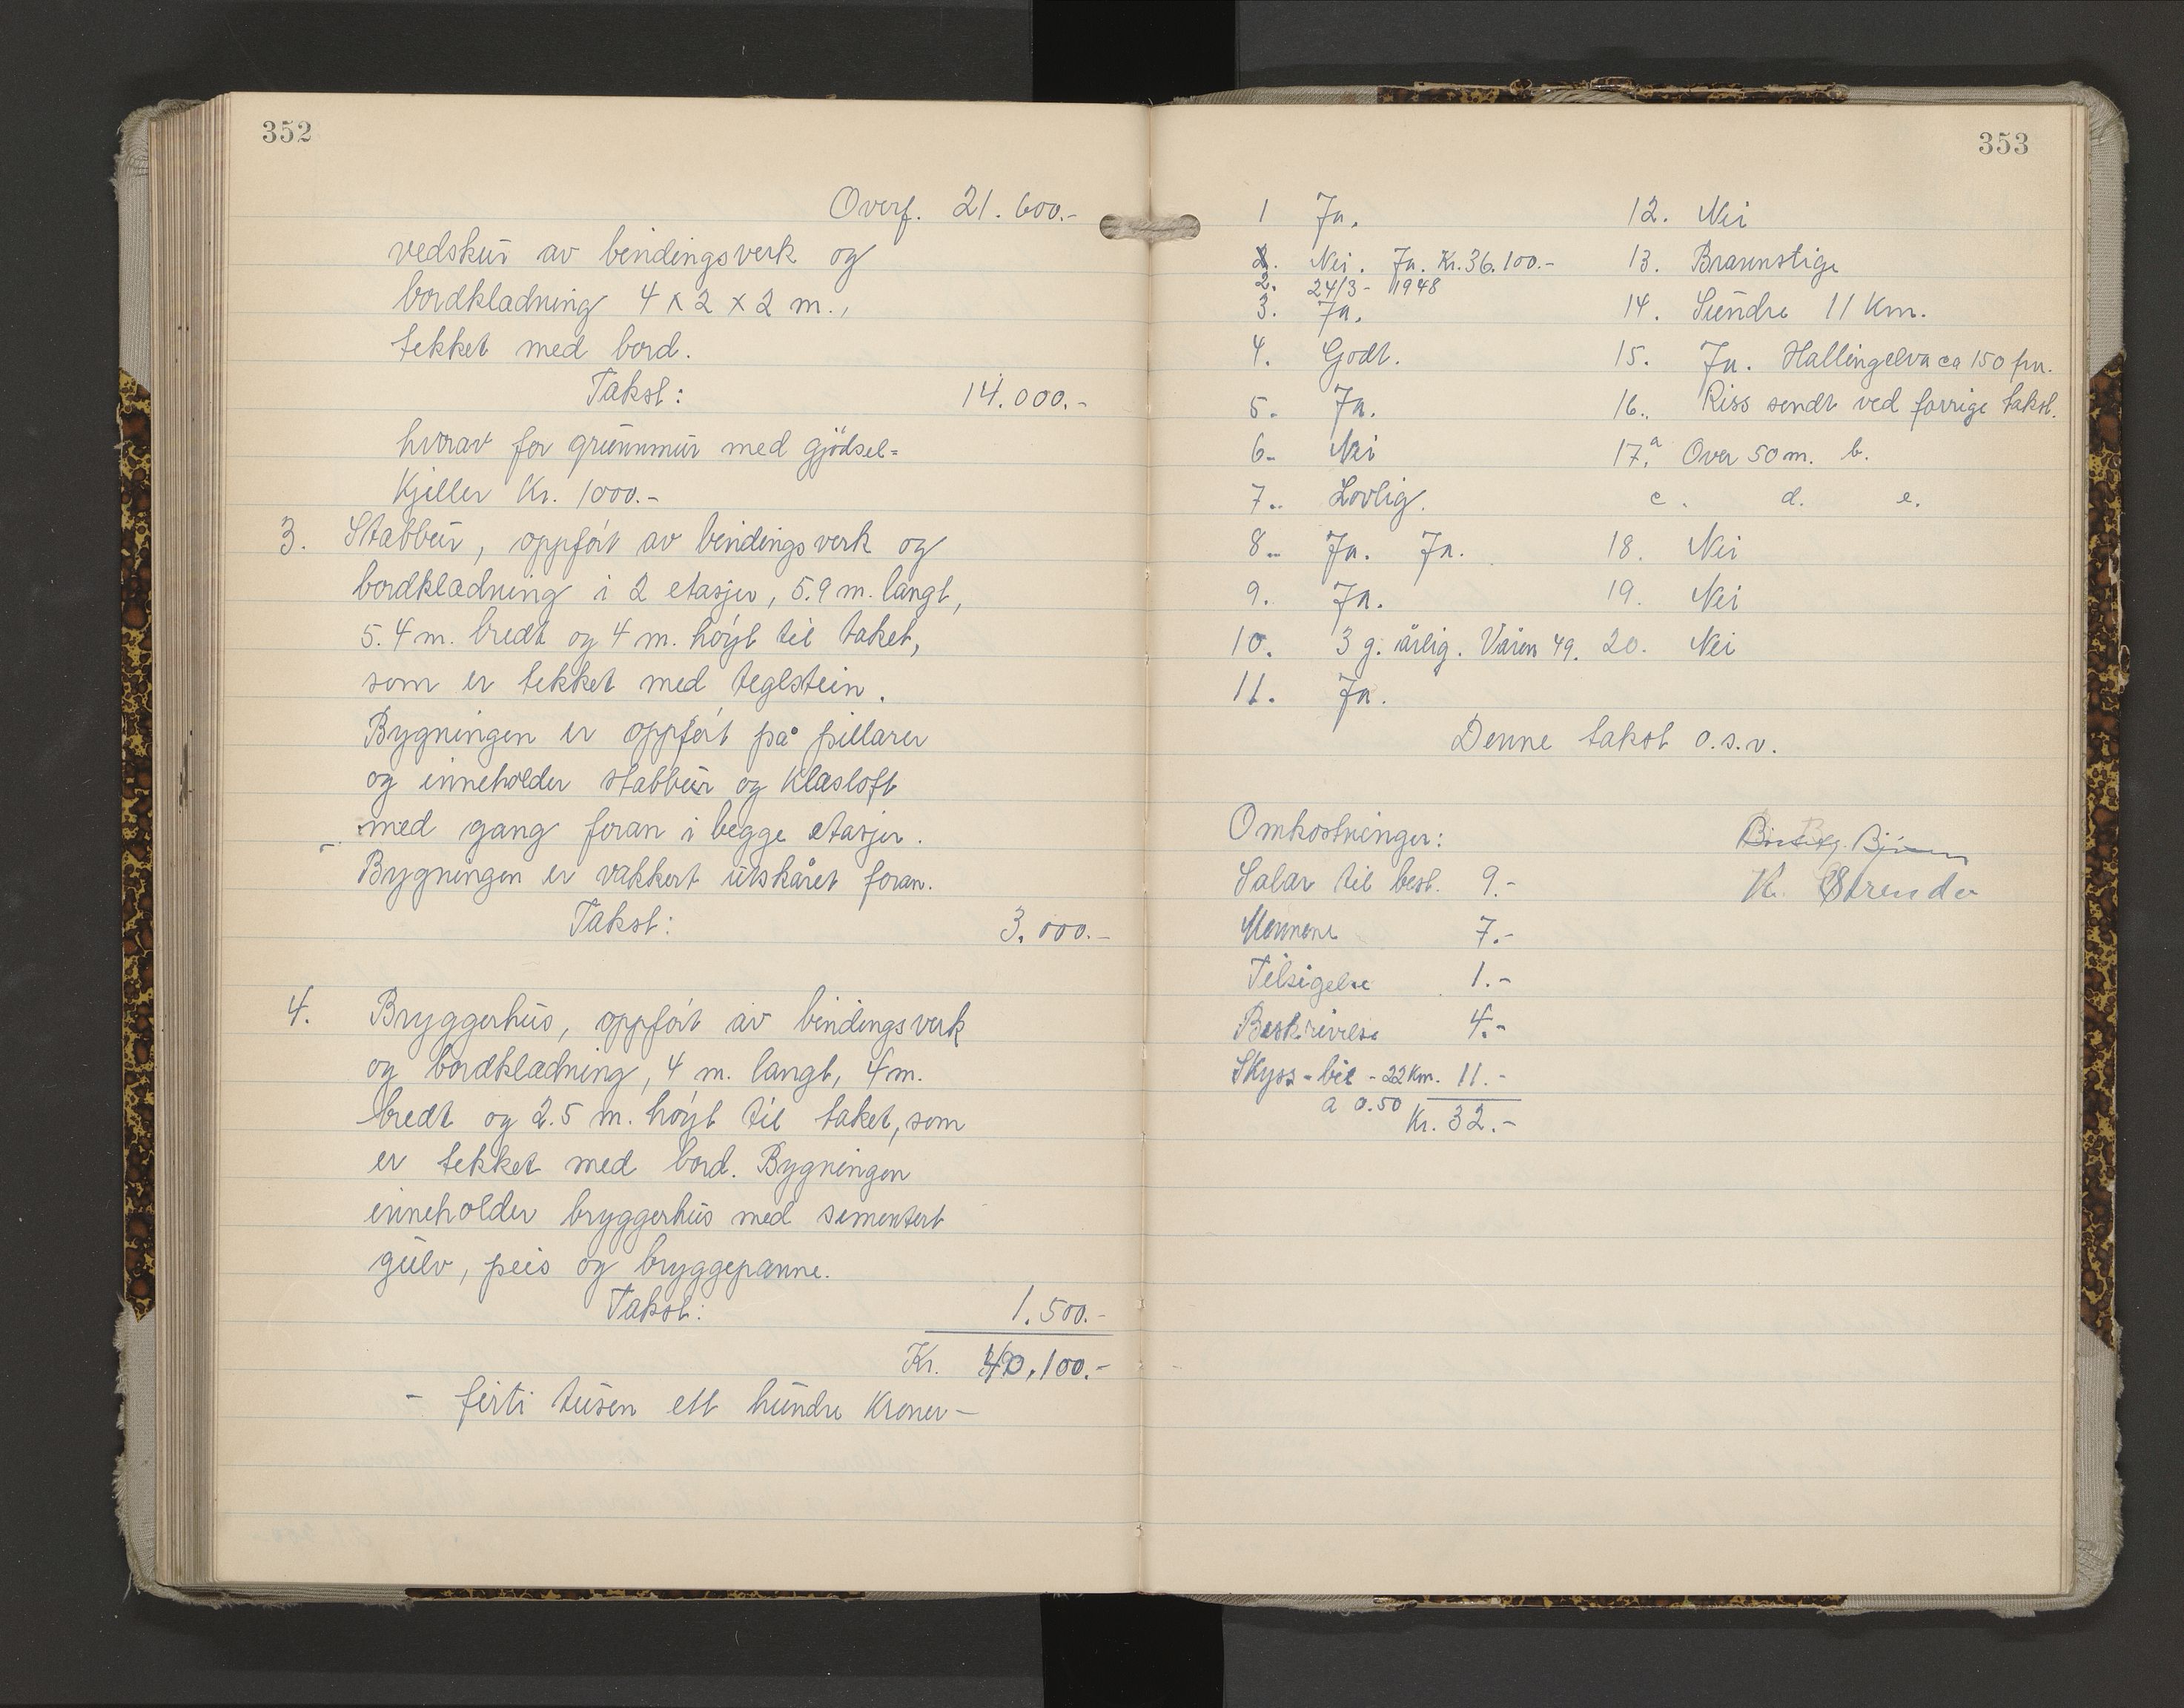 352
Overf. 21.600.-
vedskur av bindingsverk og
bordkledning 4 x 2 x 2 m.,
tekket med bord.
Takst: 14.000.-
hvorav for grunnmur med gjødsel=
kjeller Kr. 1000.-
3. Stabbur, oppført av bindingsverk og
bordkledning i 2 etasjer, 5.9 m. langt,
5.4 m. bredt og 4 m. høyt til taket,
som er tekket med teglstein.
Bygningen er oppført på pillarer
og inneholder stabbur og klesloft
med gang foran i begge etasjer.
Bygningen er vakkert utskåret foran.
Takst: 3.000.-
4. Bryggerhus, oppført av bindingsverk
og bordkledning, 4 m. langt, 4 m.
bredt og 2.5 m. høyt til taket, som
er tekket med bord. Bygningen
inneholder bryggerhus med sementert
gulv, peis og bryggepanne.
Takst: 1.500.-
Kr. 40.100.-
- firti tusen ett hundre kroner -
353
1 Ja.
2. Nei. Ja. Kr. 36.100.-
2. 24/3 - 1948
3. Ja.
4. Godt.
5. Ja.
6. Nei
7. Lovlig.
8. Ja. Ja.
9. Ja.
10. 3 g. årlig. Våren 49.
11. Ja.
12. Nei
13. Brannstige
14. Sundre 11 Km.
15. Ja. Hallingelva ca 150 m.
16. Riss sendt ved forrige takst.
17.a Over 50 m. b.
c. d. e.
18. Nei
19. Nei
20. Nei
Denne takst o.s.v.
Omkostninger:
Salær til best. 9.-
Mennene 7.-
Tilsigelse 1.-
Beskrivelse 4.-
Skyss - bil - 22 Km. 11.-
a 0.50
Kr. 32.-
K. Strende